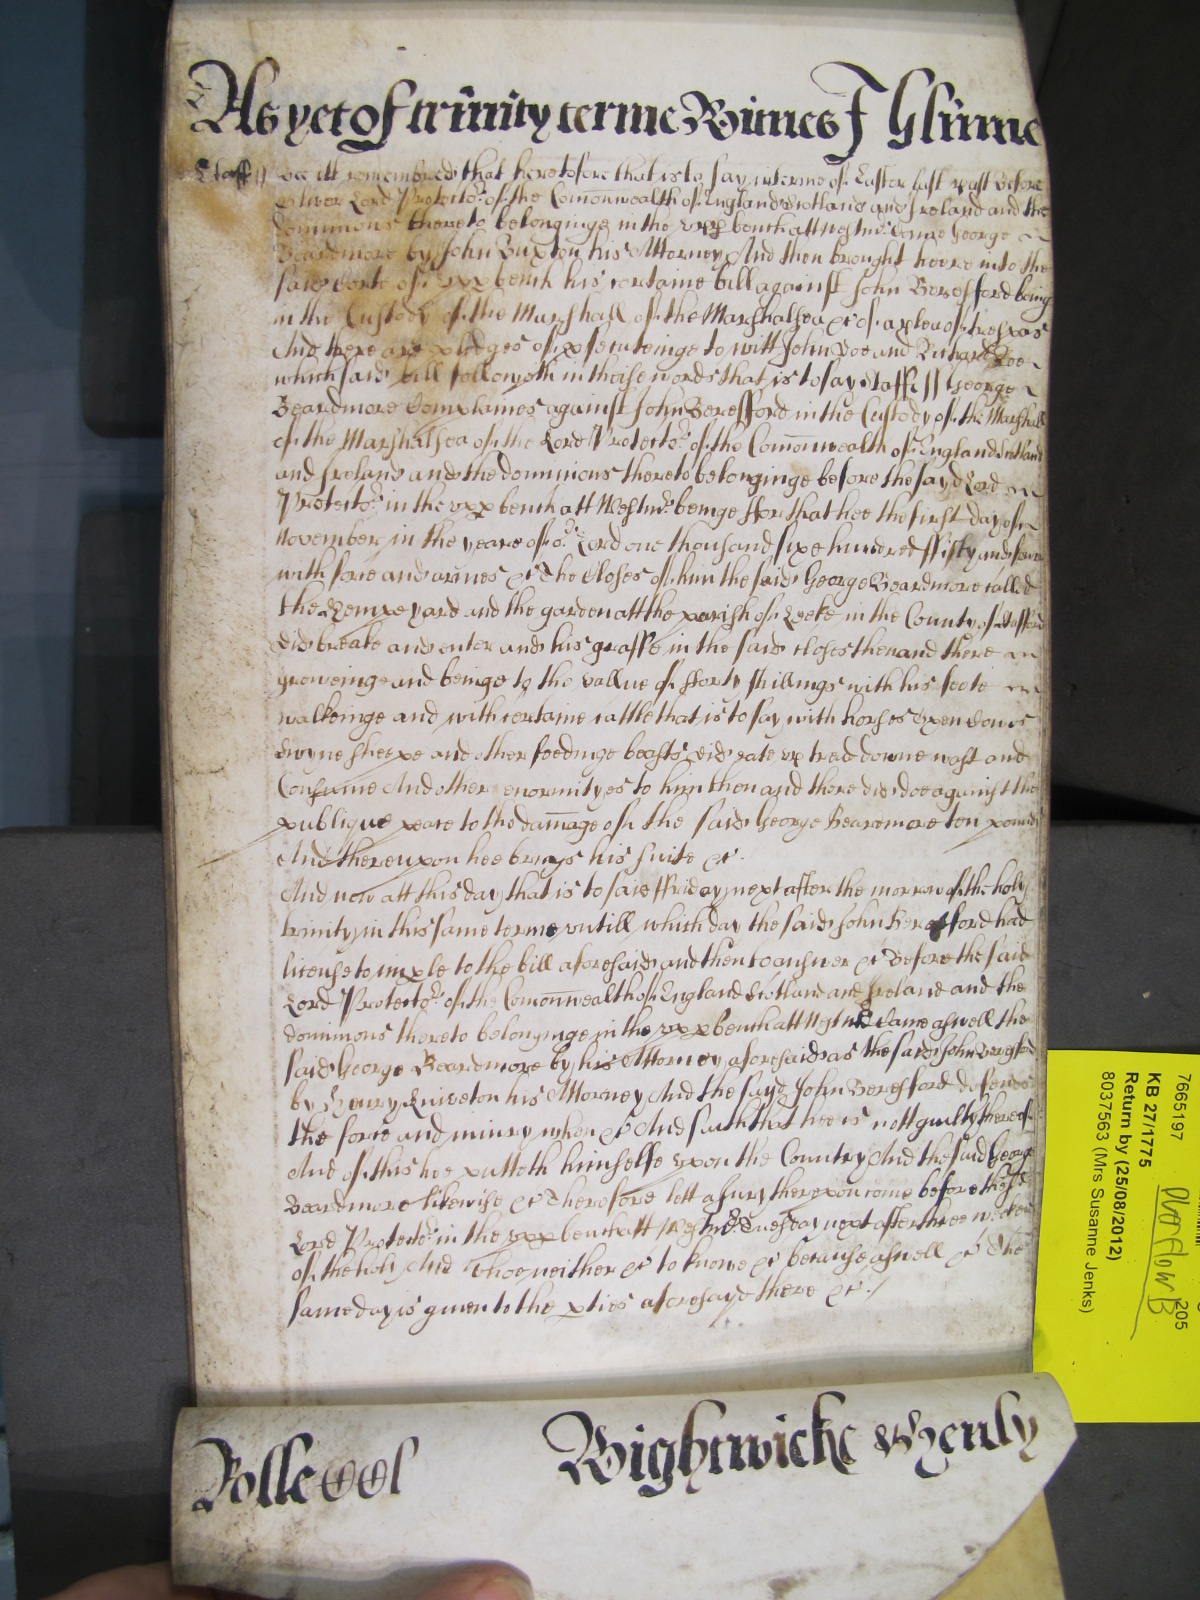 As yet of trinity terme Witnes J Glynne
Staff ss Bee itt remembred that heretofore that is to say in terme of Easter last past Before
Oliver Lord Protector of the Comonwealth of England Scotland and Ireland and the
dominions thereto belonginge in the vpp bench att Westmr came George
Beardmore by John Buxton his Attorney And then brought heere into the
said Corte of vpp bench his certaine bill against John Beresford being
in the Custody of the Marshall of the Marshalsea &c of a plea of trespas
And there are pledges of psecuteinge to witt John Doe and Richard Roe
which said bill followeth in theise words that is to say Staff ss George
Beardmore Complaines against John Beresford in the Custody of the Marshall
of the Marshalsea of the Lord Protector of the Comonwealth of England Scotland
and Ireland and the dominions thereto belonginge before the sayd Lord
Protector in the vpp bench att Westmr beinge ffor that hee the first day of
November in the yeare of or Lord one thousand sixe hundred ffifty and
with force and armes &c The Closes of him the said George Beardmore called
the Hempe yard and the garden att the parish of Leeke in the County of Stafford
did breake and enter and his grasse in the said closes then and there
groweinge and beinge to the vallue of fforty shillings with his feete
walkeinge and with certaine cattle that is to say with horses Oxen Cowes
Swyne sheepe and other feedinge beasts did eate vp tread downe wast and
Consume And other enormityes to him then and there did doe against the
publique peace to the damage of the said George Beardmore ten pounds
And thereupon hee brings his suite &c
And now att this day that is to saie ffriday next after the morrow of the holy
trinity in this same terme vntill which day the said John Beresford had
license to imple to the bill aforesaid and then to answer &c Before the said
Lord Protector of the Comonwealth of England Scotland and Ireland and the
dominions thereto belonginge in the vpp bench att Westmr Came aswell the
said George Beardmore by his Attorney aforesaid as the said John Beresford
by Henry Kniveton his Attorney And the sayd John Beresford defendes
the force and iniury when &c And saith that hee is nott guilty thereof
And of this hee putteth himselfe vpon the Country And the said George
Beardmore likewise &c Therefore lett a Jury thereupon come before the sd
Lord Protector in the vpp bench att Westmr Tuesday next after three weekes
of the holy And whoe neither &c to knowe &c because aswell &c The
same day is given to the pties aforesayd there &c
Rolle Wightwicke & Henly
7665197
205
KB 27/1775
Return by (25/08/2012)
8037563 (Mrs Susanne Jenks)
Overflow B